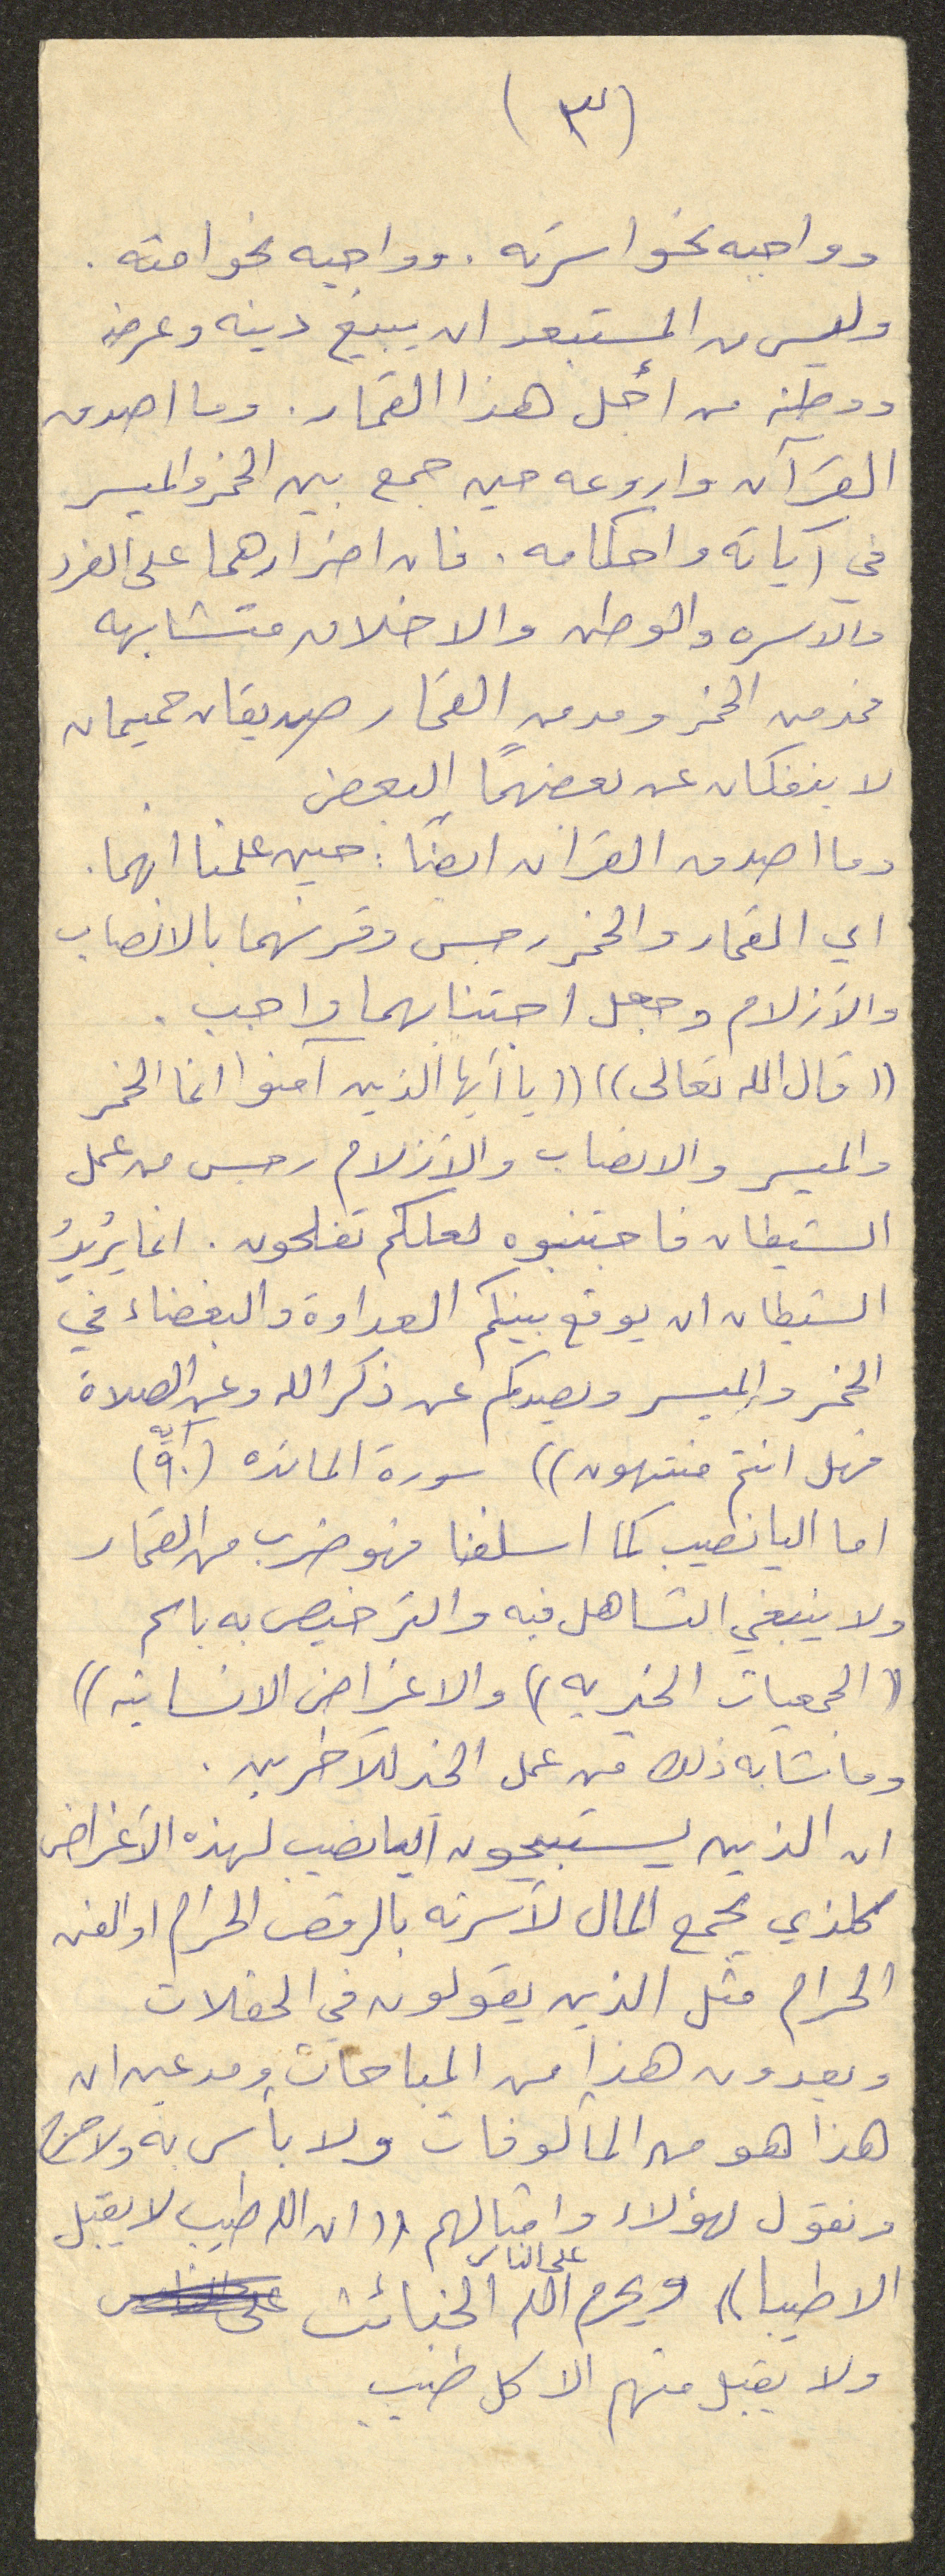 (٣)
وواجبه نحو اسرته. وواجبه نحو امته.
وليس من المستبعد ان يبيع دينه وعرضه
ووطنه من اجل هذا القمار. وما اصدق
القرآن واروعه حين جمع بين الخمر والميسر
في آياته واحكامه. فان اضرارهما على الفرد
والاسره والوطن والاخلاق متشابهه
فمدمن الخمر ومدمن القمار صديقان حميمان
لا ينفكان عن بعضهما البعض
وما اصدق القرآن ايضًا: حين علمنا انهما.
اي القمار والخمر رجس وقرنهما بالانصاب
والأزلام وجعل اجتنابهما واجب.
((قال الله تعالى)) ((يا أيها الذين آمنوا انما الخمر
والميسر والانصاب والأزلام رجس من عمل
الشيطان فاجتنبوه لعلكم تفلحون. انما يُريدُ
الشيطان ان يوقع بينكم العداوة والبغضاء في
الخمر والميسر ويصدكم عن ذكر الله وعن الصلاة
فهل انتم منتهون)) سورة المائده (آية ٩٠)
اما اليانصيب كما اسلفنا فهو ضرب من القمار
ولا ينبغي التساهل فيه والترخيص به باسم
((الجمعيات الخيريه)) والاغراض الانسانيه))
وما شابه ذلك من عمل الخير للآخرين.
ان الذين يستبيحون اليانصيب لهذه الأغراض
كلذي يجمع المال لأسرته بالرقص الحرام او الفن
الحرام مثل الذين يقولون في الحفلات
ويعدون هذا من المباحات ومدعين ان
هذا هو من المألوفات ولا بأس به ولا حرج
ونقول لهؤلاء وامثالهم ((ان الله طيب لا يقبل
الا طيبا)) ويحرم الله على الناس الخبائث
ولا يقبل منهم الا كل طيب